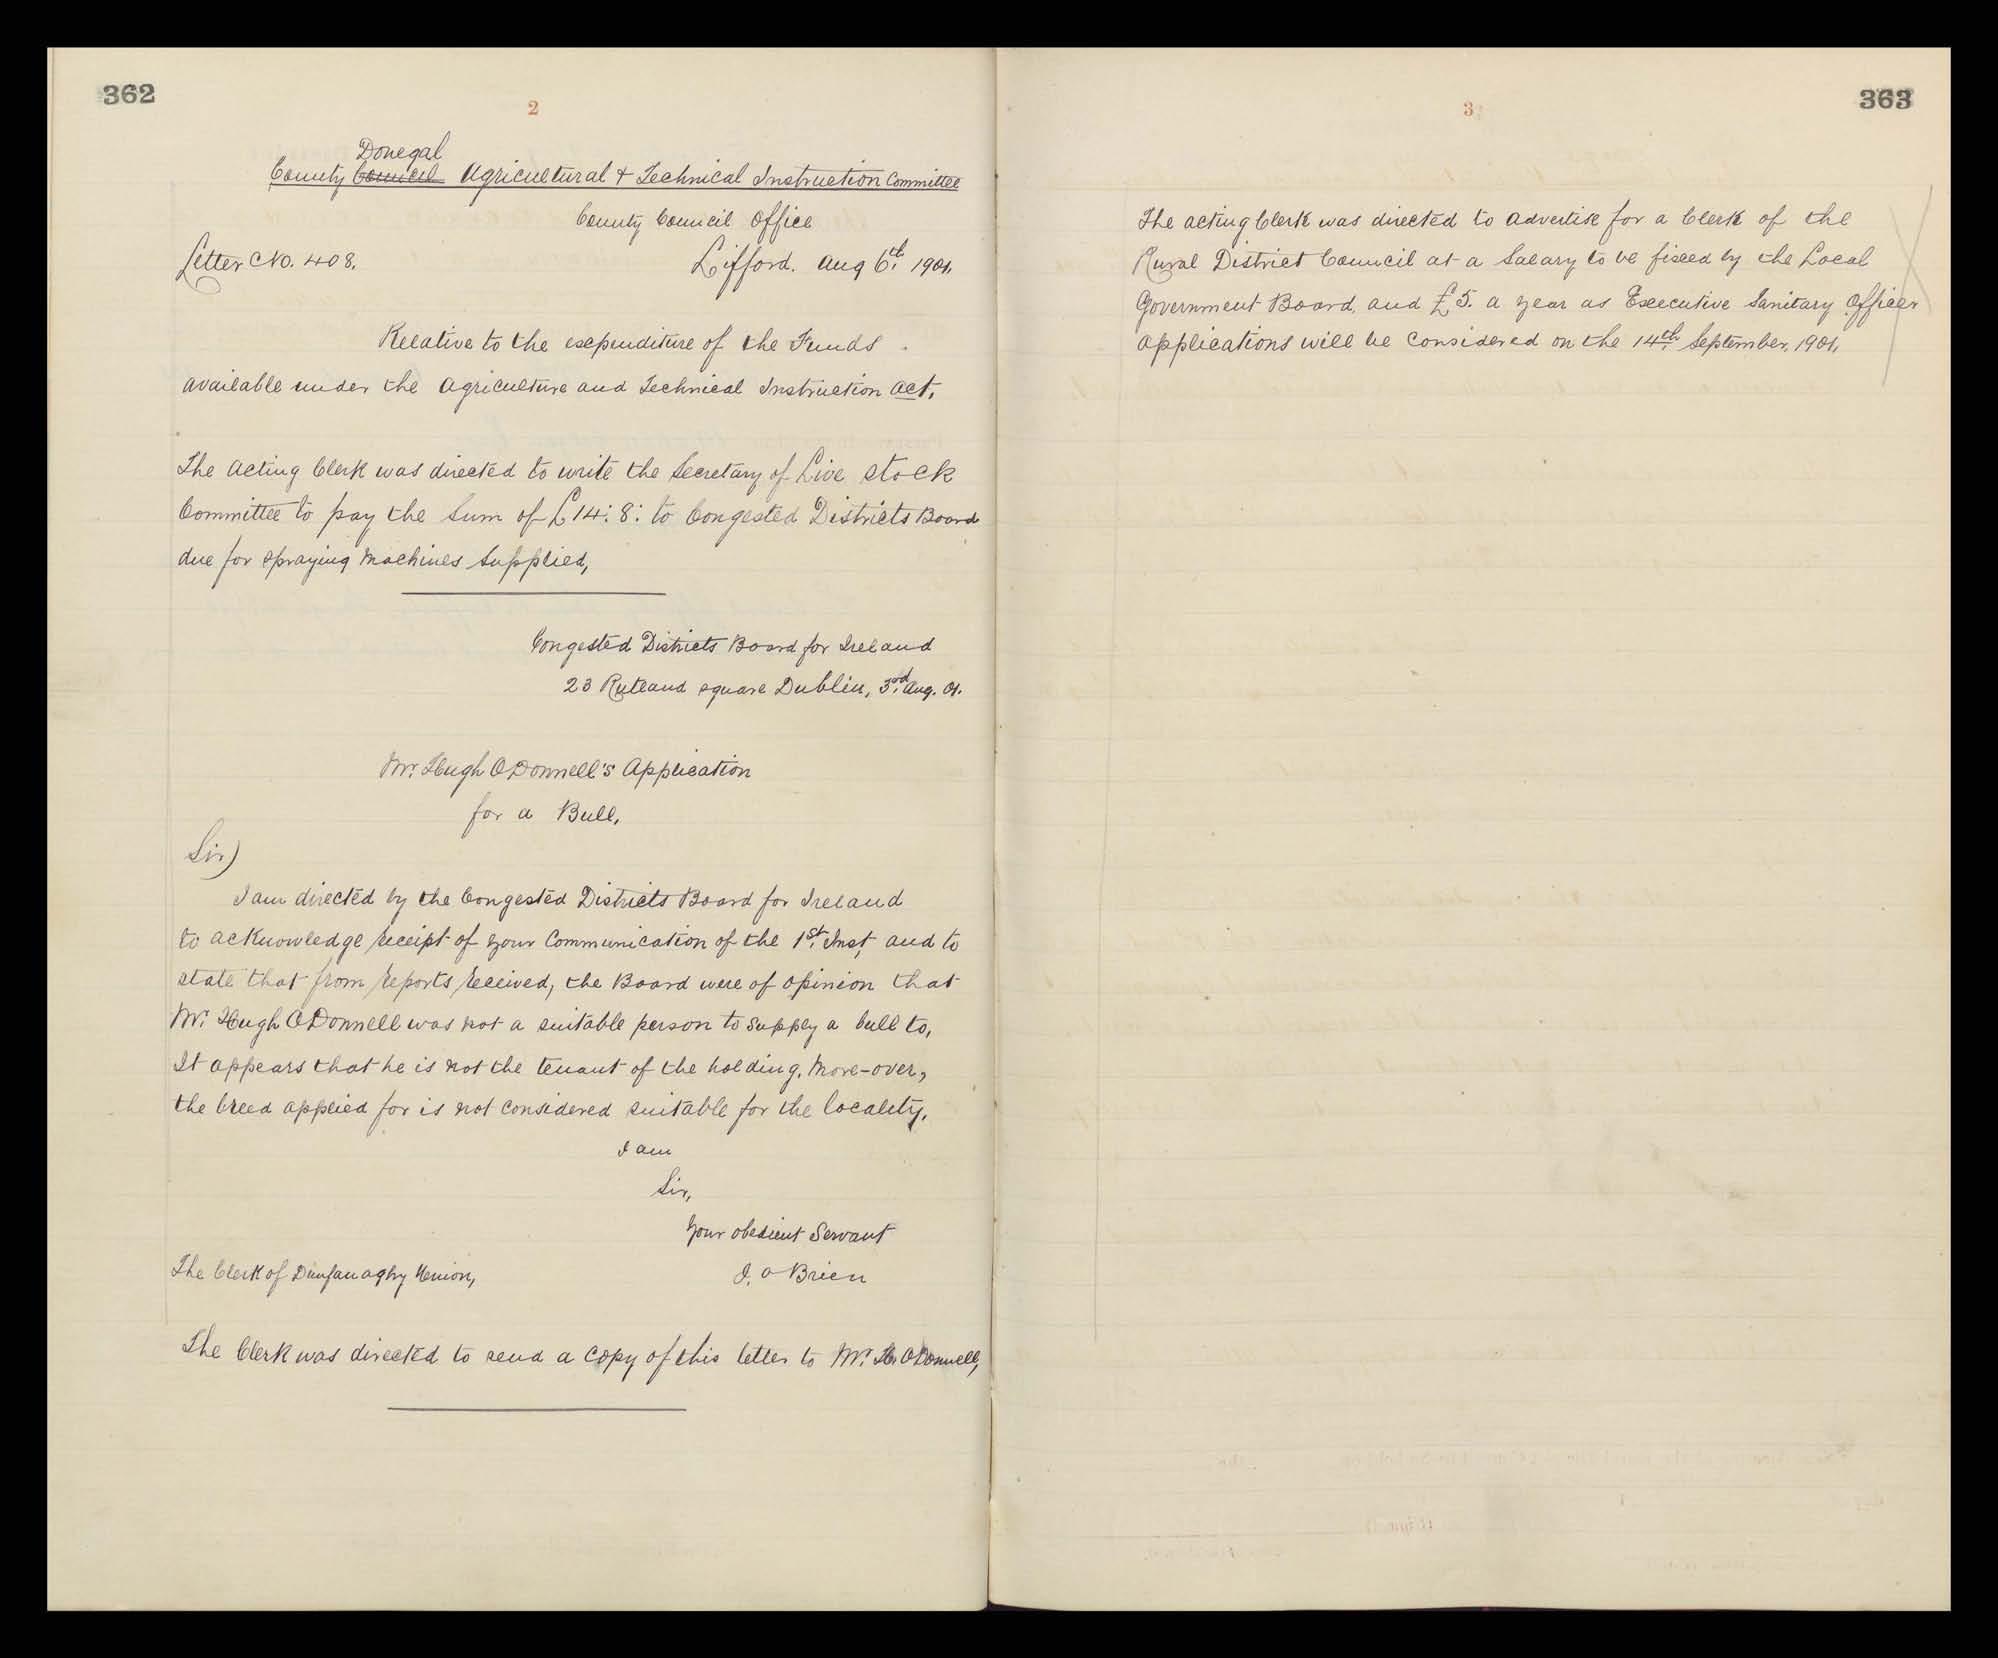 362
2
Donegal
County Council Agricultural & Technical Instruction Committee
County Council Office
Letter No. 408. Lifford. Aug 6th. 1901.
Relative to the expenditure of the Funds
available under the Agriculture and Technical Instruction Act.
The Acting Clerk was directed to write the Secretary of Live stock
Committee to pay the Sum of £14:8: to Congested Districts Board
due for spraying Machines Supplied,
Congested Districts Board for Ireland
23 Rutland square Dublin, 3rd. Aug. 01.
Mr. Hugh O'Donnell's Application
for a Bull,
Sir)
I am directed by the Congested Districts Board for Ireland
to acknowledge receipt of your Communication of the 1st. Inst, and to
state that from reports received, the Board were of opinion that
Mr. Hugh O'Donnell was not a suitable person to supply a bull to,
It appears that he is not the tenant of the holding. More-over,
the breed applied for is not considered suitable for the locality.
I am
Sir,
Your obedient Servant
The Clerk of Dunfanaghy Union, J. O Brien
The Clerk was directed to send a copy of this letter to Mr. H. O'Donnell,
363
3
The acting Clerk was directed to advertise for a Clerk of the
Rural District Council at a Salary to be fixed by the Local
Government Board, and £5. a year as Executive Sanitary Officer
applications will be considered on the 14th. September, 1901.